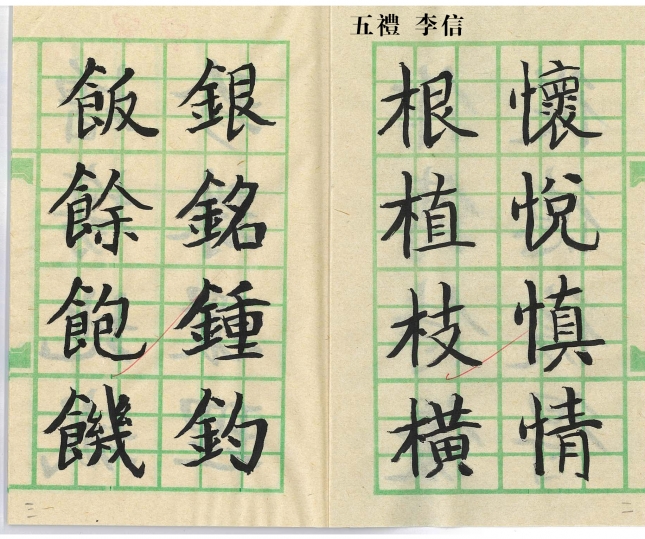 五禮 李信
懷悅慎情
根植枝橫
銀銘鍾釣
飯餘飽饑
二
三